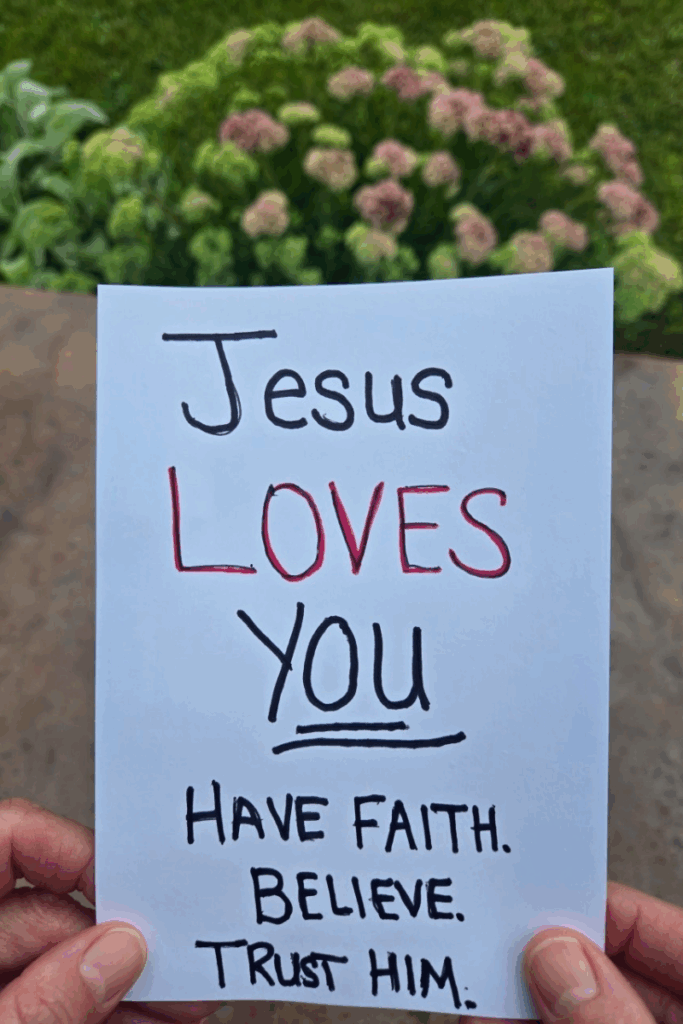 Jesus
LOVES
YOU
HAVE FAITH.
BELIEVE.
TRUST HIM.